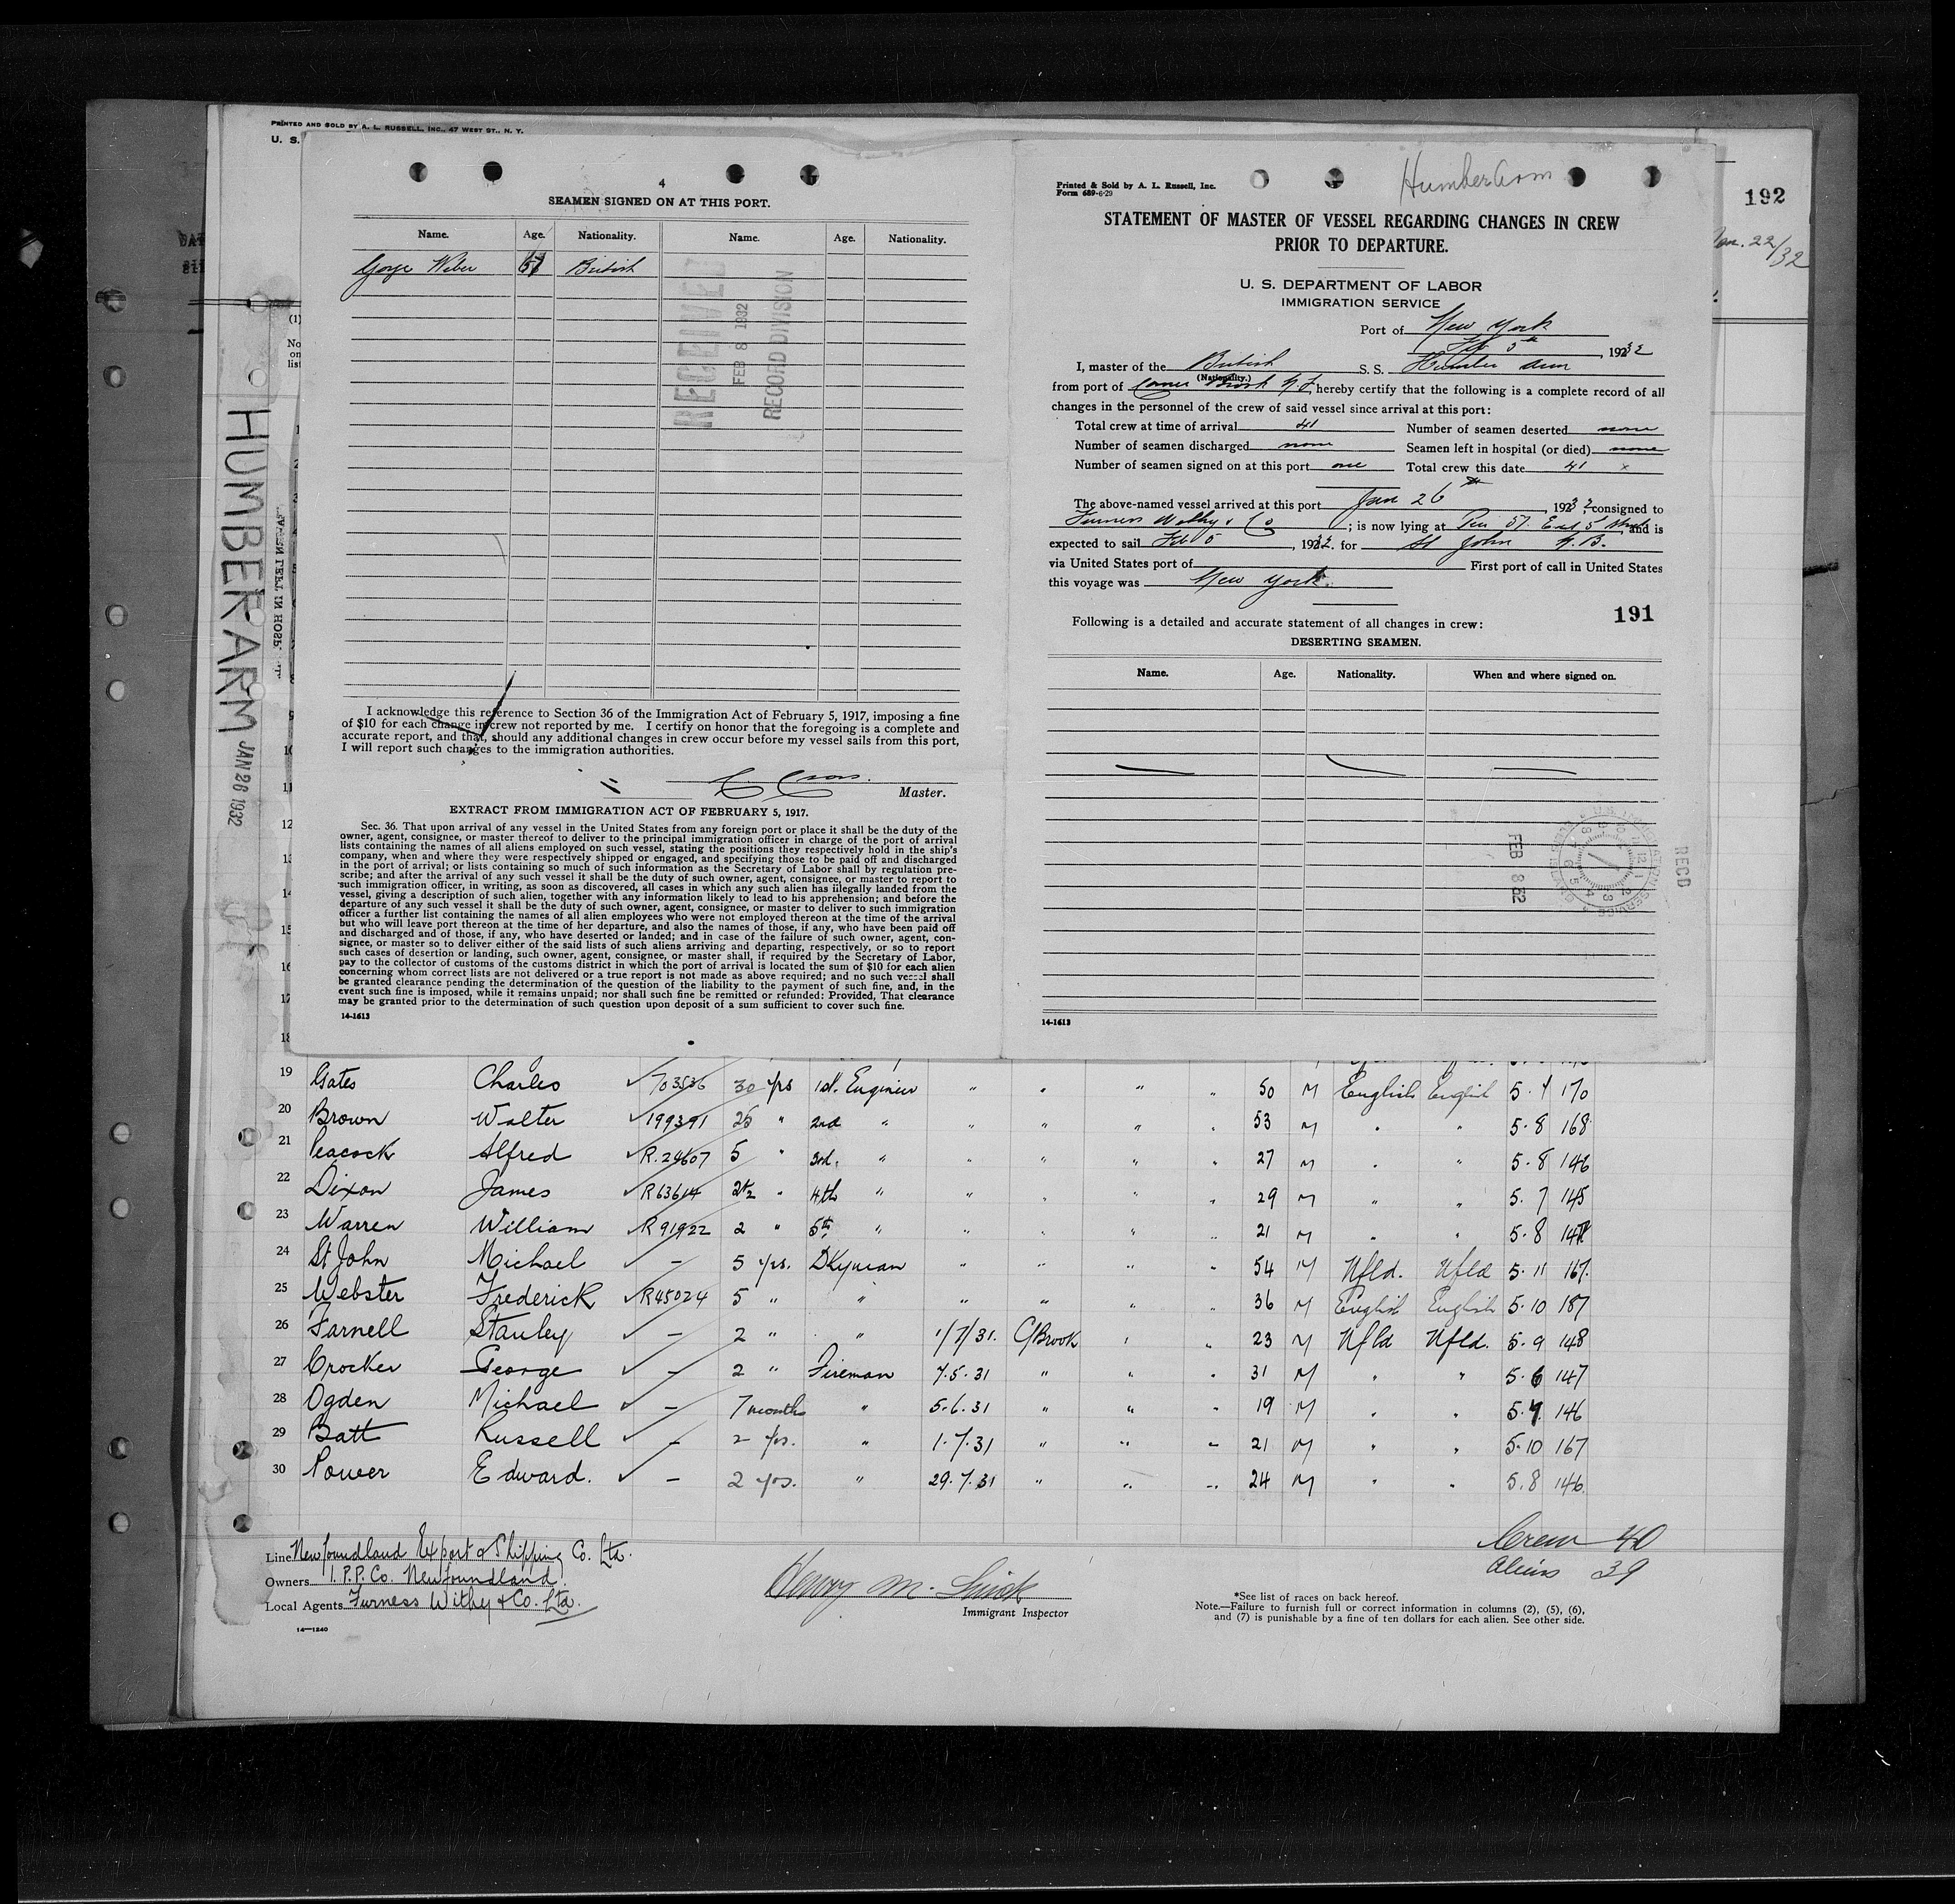 PRINTED AND SOLD BY A. L. RUSSELL, INC., 47 WEST ST., N. Y.
U. S.
192
Jan. 22/32
HUMBER ARM JAN 26 1932
4
SEAMEN SIGNED ON AT THIS PORT.
Name. Age. Nationality. Name. Age. Nationality.
George Weber British
RECEIVED
FEB 8 1932
RECORD DIVISION
I acknowledge this reference to Section 36 of the Immigration Act of February 5, 1917, imposing a fine
of $10 for each change in crew not reported by me. I certify on honor that the foregoing is a complete and
accurate report, and that, should any additional changes in crew occur before my vessel sails from this port,
I will report such changes to the immigration authorities.
Master.
EXTRACT FROM IMMIGRATION ACT OF FEBRUARY 5, 1917.
Sec. 36. That upon arrival of any vessel in the United States from any foreign port or place it shall be the duty of the
owner, agent, consignee, or master thereof to deliver to the principal immigration officer in charge of the port of arrival
lists containing the names of all aliens employed on such vessel, stating the positions they respectively hold in the ship's
company, when and where they were respectively shipped or engaged, and specifying those to be paid off and discharged
in the port of arrival; or lists containing so much of such information as the Secretary of Labor shall by regulation pre-
scribe; and after the arrival of any such vessel it shall be the duty of such owner, agent, consignee, or master to report to
such immigration officer, in writing, as soon as discovered, all cases in which any such alien has illegally landed from the
vessel, giving a description of such alien, together with any information likely to lead to his apprehension; and before the
departure of any such vessel it shall be the duty of such owner, agent, consignee, or master to deliver to such immigration
officer a further list containing the names of all alien employees who were not employed thereon at the time of the arrival
but who will leave port thereon at the time of her departure, and also the names of those, if any, who have been paid off
and discharged and of those, if any, who have deserted or landed; and in case of the failure of such owner, agent, con-
signee, or master so to deliver either of the said lists of such aliens arriving and departing, respectively, or so to report
such cases of desertion or landing, such owner, agent, consignee, or master shall, if required by the Secretary of Labor,
pay to the collector of customs of the customs district in which the port of arrival is located the sum of $10 for each alien
concerning whom correct lists are not delivered or a true report is not made as above required; and no such vessel shall
be granted clearance pending the determination of the question of the liability to the payment of such fine, and, in the
event such fine is imposed, while it remains unpaid; nor shall such fine be remitted or refunded: Provided, That clearance
may be granted prior to the determination of such question upon deposit of a sum sufficient to cover such fine.
14-1613
Printed & Sold by A. L. Russell, Inc.
Form 689-6-29
Humber Arm
STATEMENT OF MASTER OF VESSEL REGARDING CHANGES IN CREW
PRIOR TO DEPARTURE.
U. S. DEPARTMENT OF LABOR
IMMIGRATION SERVICE
Port of New York
Feb 5th, 1932
I, master of the British S. S. Humber Arm
(Nationality.)
from port of Corner Brook N.F. hereby certify that the following is a complete record of all
changes in the personnel of the crew of said vessel since arrival at this port:
Total crew at time of arrival 41 Number of seamen deserted none
Number of seamen discharged none Seamen left in hospital (or died) none
Number of seamen signed on at this port one Total crew this date 41 x
The above-named vessel arrived at this port Jan 26th, 1932, consigned to
Furness Withy & Co; is now lying at Pier 57. East 5 and is
expected to sail Feb 5, 1932. for St John N.B.
via United States port of First port of call in United States
this voyage was New York.
Following is a detailed and accurate statement of all changes in crew: 191
DESERTING SEAMEN.
Name. Age. Nationality. When and where signed on.
RECD
FEB 8 32
14-1613
19 Gates Charles 703536 30 yrs 1st. Engineer " " " " 50 M English English 5.7 170
20 Brown Walter 199391 25 " 2nd " " " " " 53 M " " 5.8 168
21 Peacock Alfred R.24607 5 " 3rd. " " " " " 27 M " " 5.8 146
22 Dixon James R63614 2½ " 4th " " " " " 29 M " " 5.7 145
23 Warren William R91922 2 " 5th " " " " " 21 M " " 5.8
24 St John Michael - 5 yrs. DKyman " " " " 54 M Nfld. Nfld 5.11 167.
25 Webster Frederick R45024 5 " " " " " " 36 M English English 5.10 187
26 Farnell Stanley - 2 " " 1/7/31. C/Brook " " 23 M Nfld Nfld. 5.9 148
27 Crocker George - 2 " Fireman 7.5.31 " " " 31 M " " 5.6 147
28 Ogden Michael - 7 months " 5.6.31 " " " 19 M " " 5.7. 146
29 Batt Russell - 2 yrs. " 1.7.31 " " " 21 M " " 5.10 167
30 Power Edward. - 2 yrs. " 29.7.31 " " " 24 M " " 5.8 146
Crew 40
Aliens 39
Line Newfoundland Export & Shipping Co. Ltd.
Owners I.P.P. Co. Newfoundland.
Local Agents Furness Withy & Co. Ltd.
14-1240
Henry M.
Immigrant Inspector
*See list of races on back hereof.
Note.—Failure to furnish full or correct information in columns (2), (5), (6),
and (7) is punishable by a fine of ten dollars for each alien. See other side.